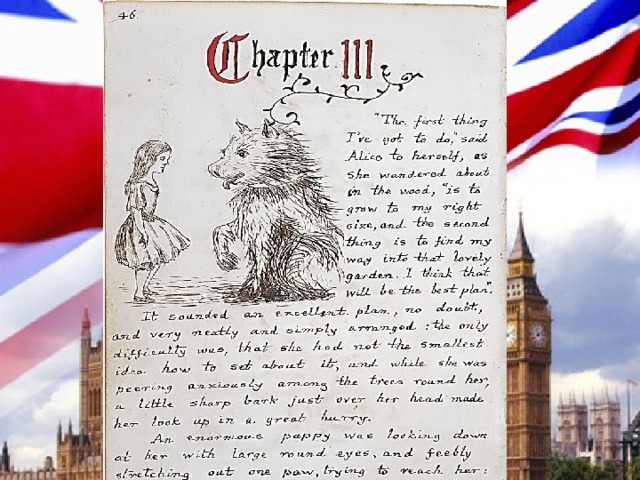 46.
Chapter III
"The first thing
I've got to do," said
Alice to herself, as
she wandered about
in the wood, "is to
grow to my right
size, and the second
thing is to find my
way into that lovely
garden. I think that
will be the best plan".
It sounded an excellent plan, no doubt,
and very neatly and simply arranged: the only
difficulty was, that she had not the smallest
idea how to set about it, and while she was
peering anxiously among the trees round her,
a little sharp bark just over her head made
her look up in a great hurry.
An enormous puppy was looking down
at her with large round eyes, and feebly
stretching out one paw, trying to reach her: